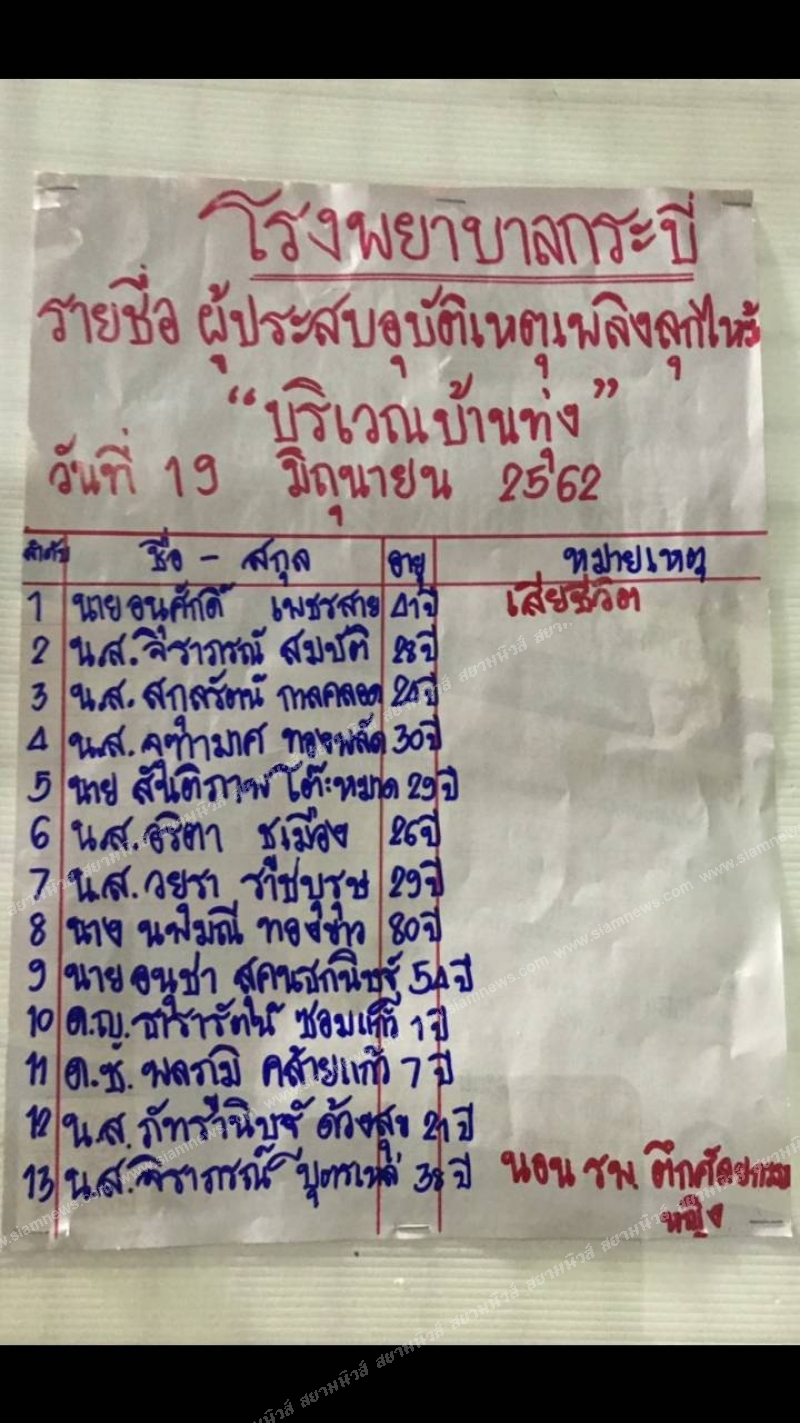 โรงพยาบาลกระบี่
รายชื่อ ผู้ประสบอุบัติเหตุเพลิงลุกไหม้
"บริเวณบ้านทุ่ง"
วันที่ 19 มิถุนายน 2562
ลำดับ ชื่อ - สกุล อายุ หมายเหตุ
1 นายอนุศักดิ์ เพชรสาย 41ปี เสียชีวิต
2 น.ส.จิราภรณ์ สมบัติ 28ปี
3 น.ส. สกุลรัตน์ กาลคลอด ปี
4 น.ส. จุฑามาศ ทองพลัด 30ปี
5 นาย สันติภาพ โต๊ะหมาด 29ปี
6 น.ส.อริตา ชูเมือง 26ปี
7 น.ส.วยุรา ราชบุรุษ 29ปี
8 นาง นพมณี ทองขาว 80ปี
9 นายอนุชา 54ปี
10 ด.ญ.ธารารัตน์ ซอมแก้ว 1ปี
11 ด.ช. พลภูมิ คล้ายแก้ว 7ปี
12 น.ส. ด้วงสุข 21ปี
13 น.ส.จิราภรณ์ บุตรเหล่ 38ปี นอน รพ. ตึกศัลยกรรม
หญิง
สยามนิวส์ www.siamnews.com